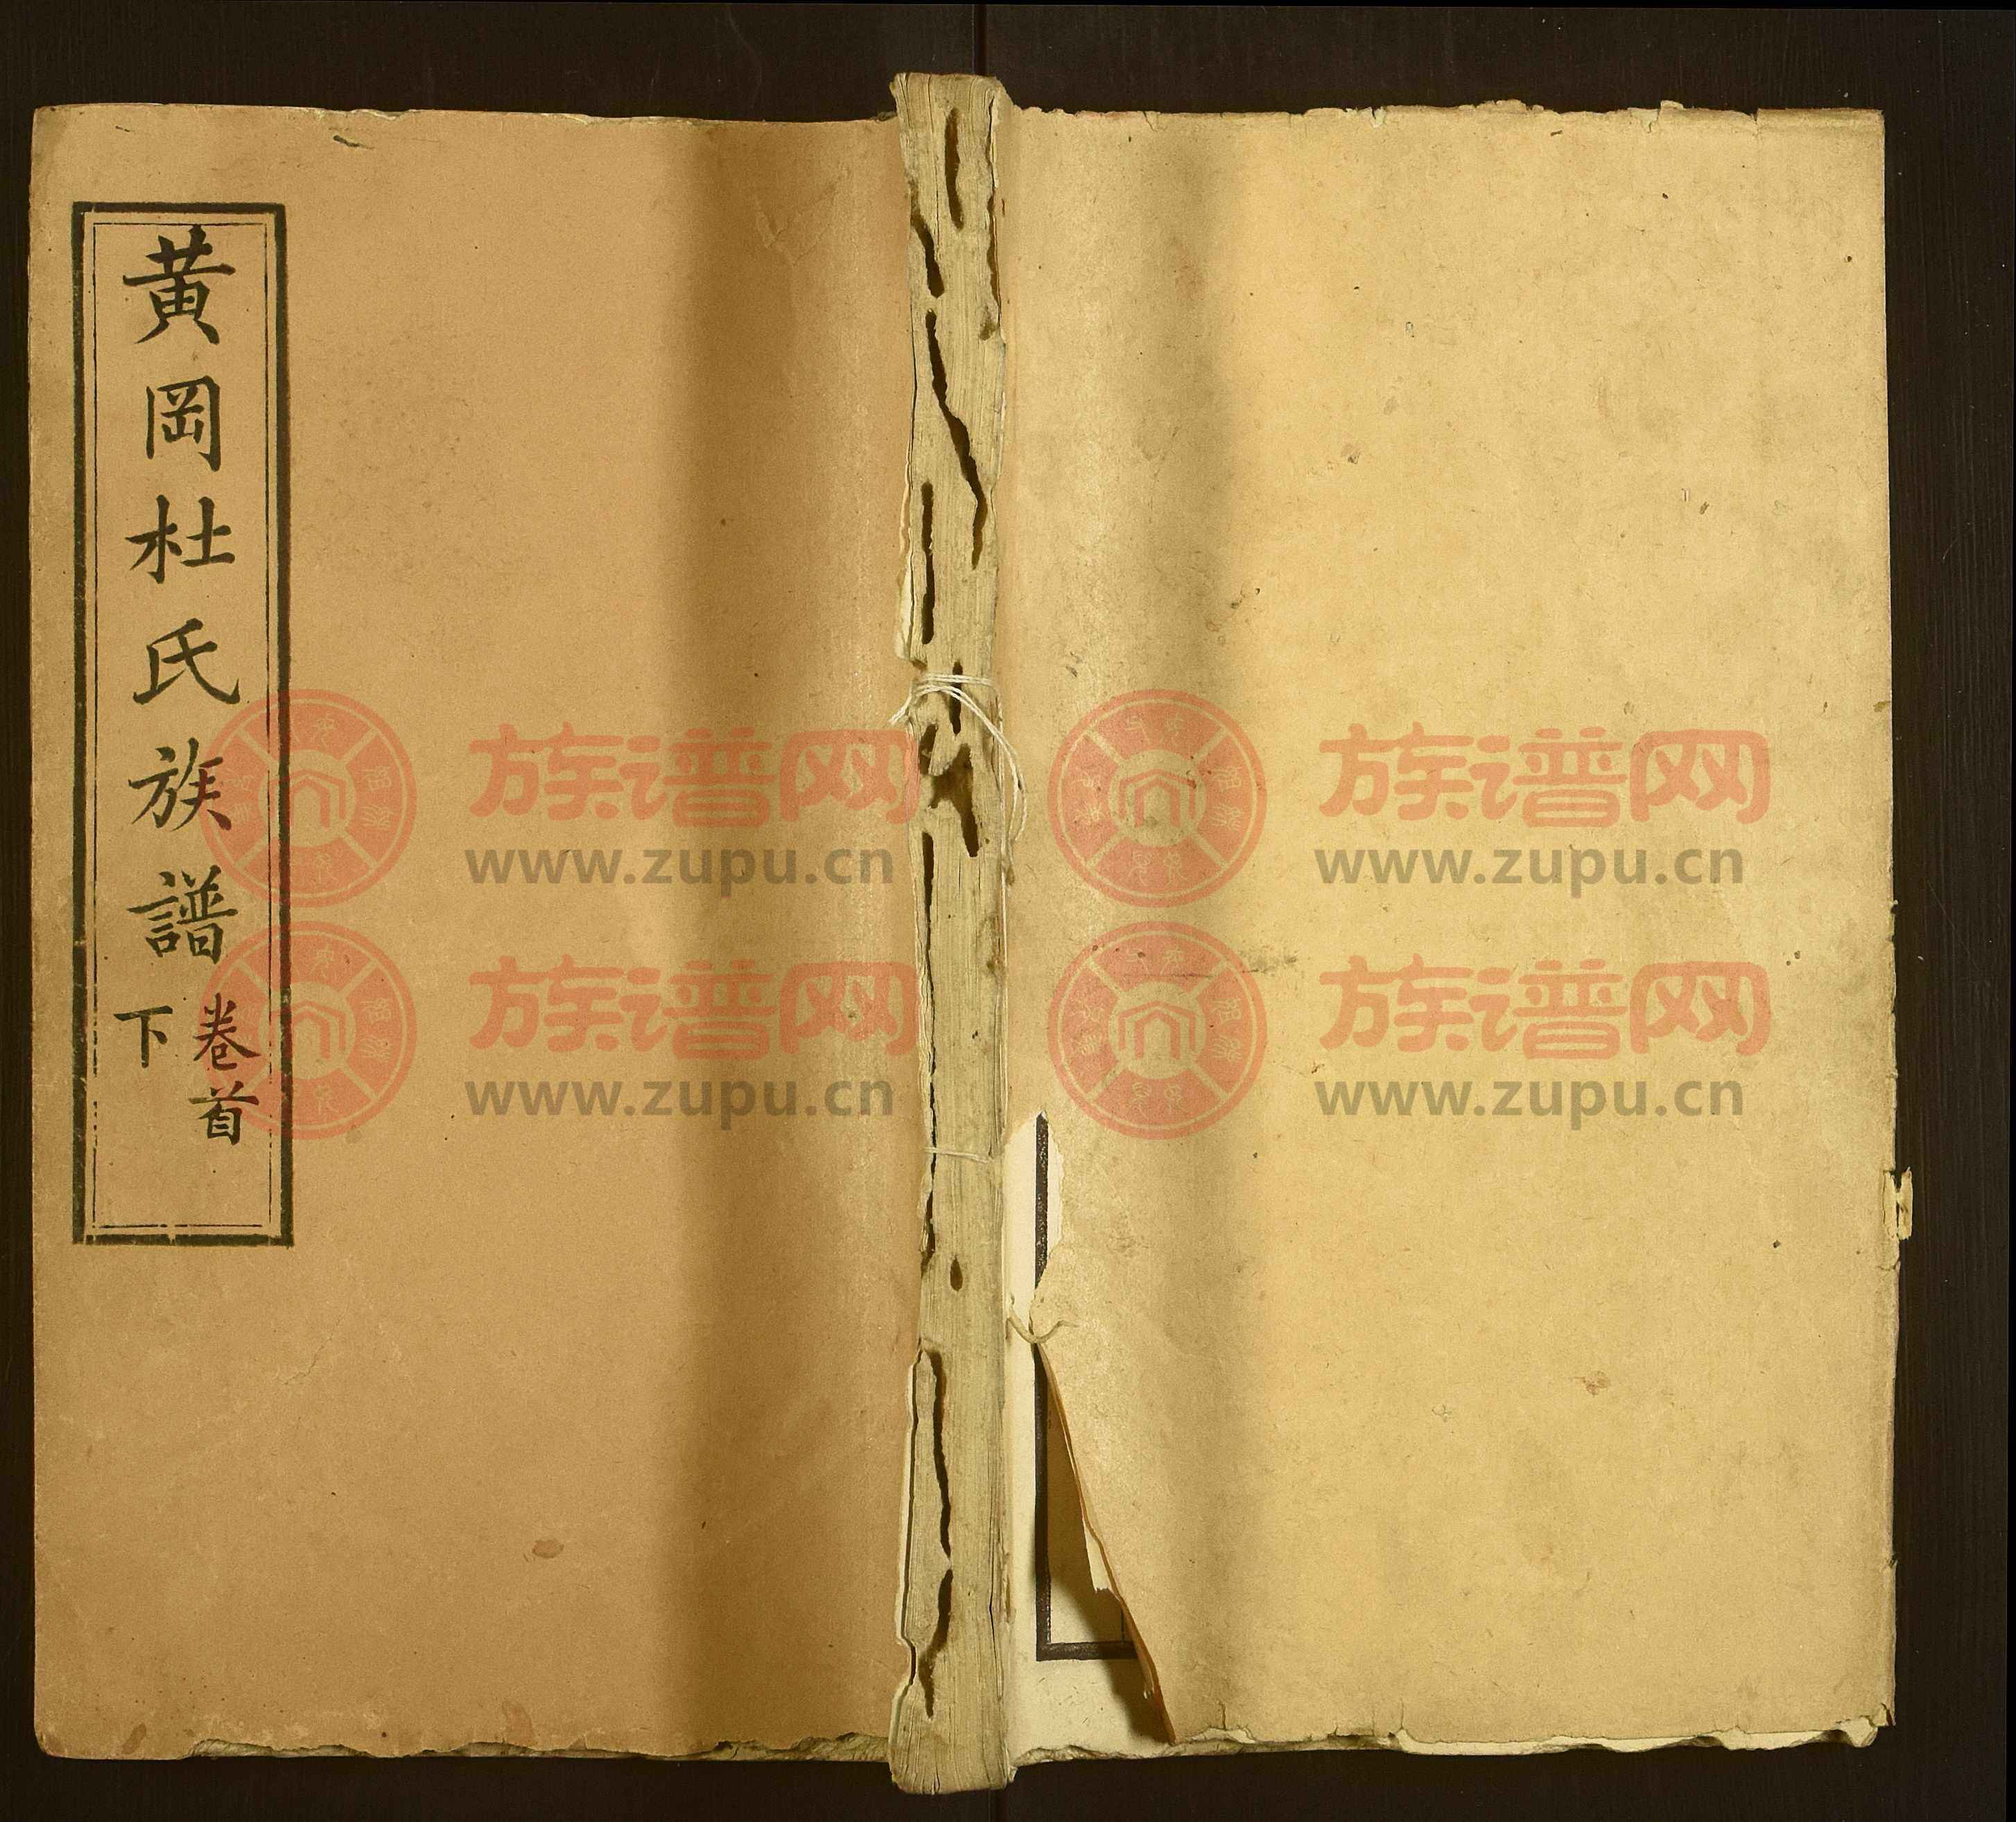 黃岡杜氏族譜
卷首
下
族谱网
www.zupu.cn
族谱网
www.zupu.cn
族谱网
www.zupu.cn
族谱网
www.zupu.cn